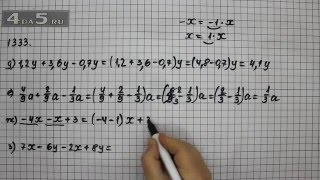 4DA5.RU
-x = -1 · x
x = 1 · x
1333.
g) 1,2y + 3,6y - 0,7y = (1,2 + 3,6 - 0,7)y = (4,8 - 0,7)y = 4,1y
e) 4/9 a + 2/9 a - 1/3 a = (4/9 + 2/9 - 1/3)a = (2/3 - 1/3)a = (2/3 - 1/3)a = 1/3 a
ж) -4x - x + 3 = (-4 - 1)x + 3
з) 7x - 6y - 2x + 8y =